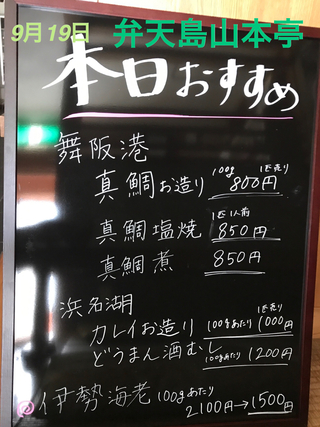 9月19日 弁天島山本亭
本日おすすめ
舞阪港
100g 1匹売り
真鯛お造り 800円
1匹1人前
真鯛塩焼 850円
真鯛煮 850円
浜名湖
1匹売り
カレイお造り 100gあたり 1000円
どうまん酒むし 100gあたり 1200円
伊勢海老 100gあたり
2100円→1500円